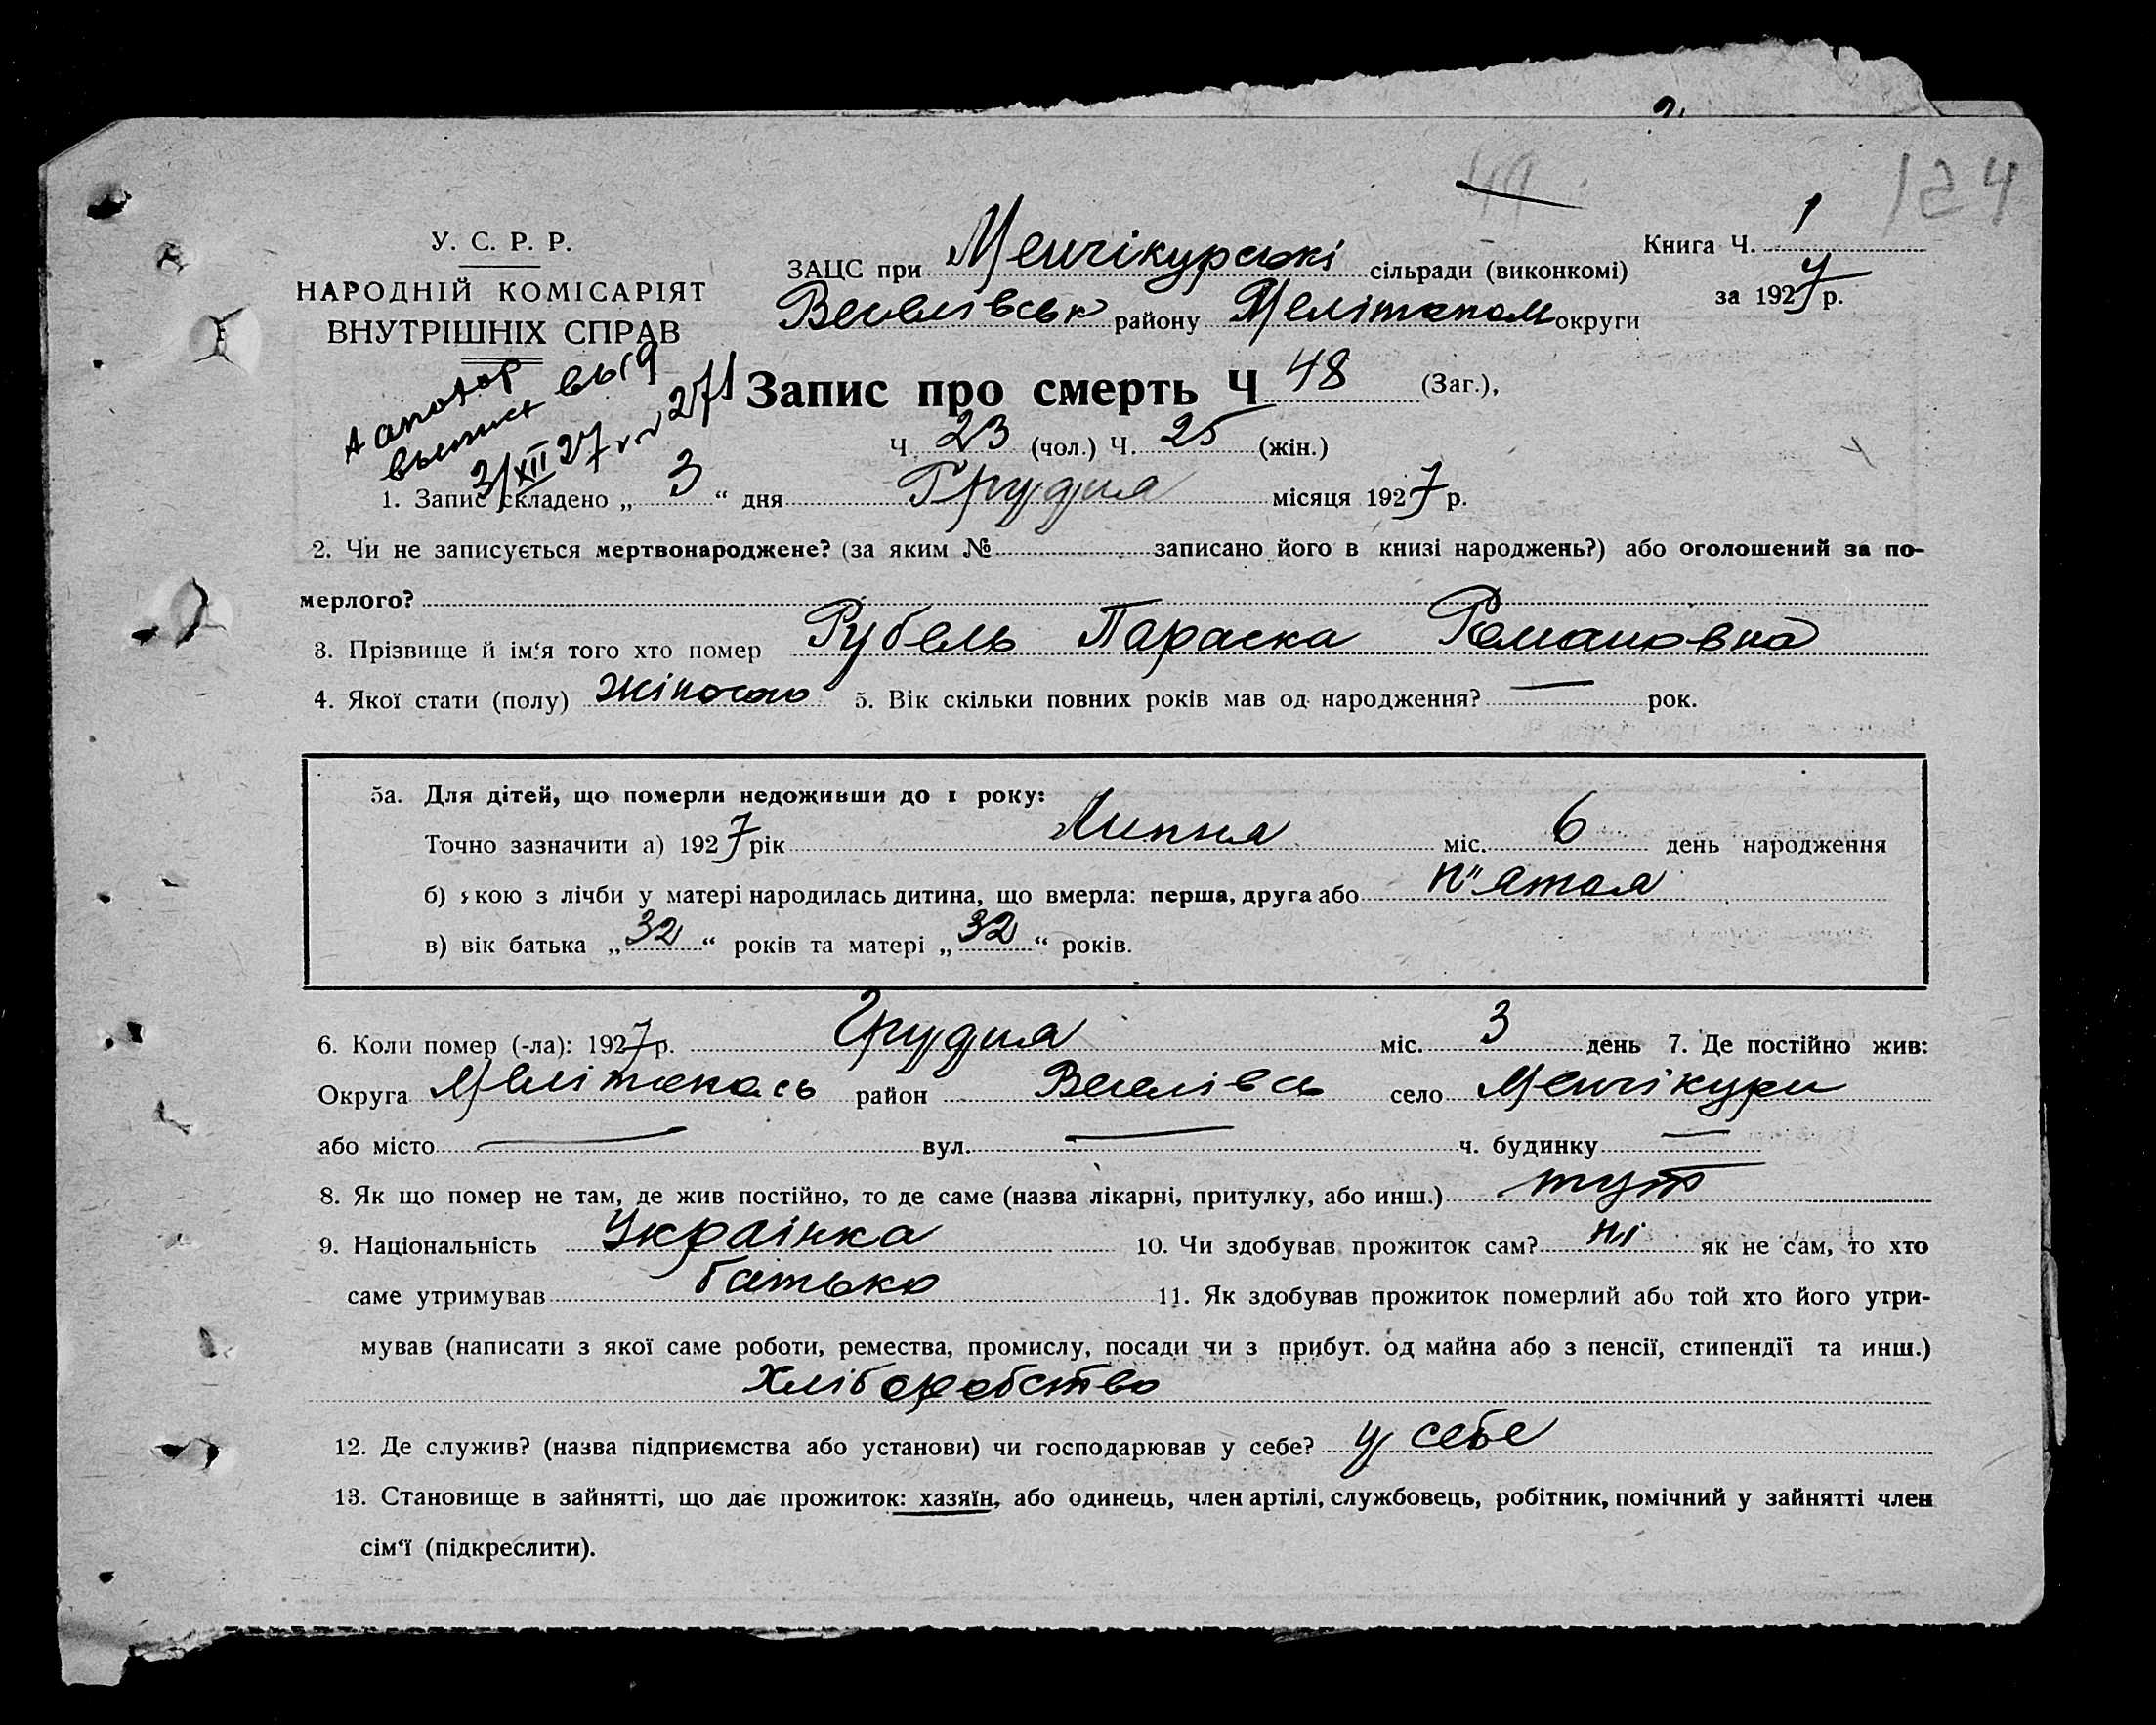 124
У. С. Р. Р.
НАРОДНІЙ КОМІСАРІЯТ
ВНУТРІШНІХ СПРАВ
ЗАЦС при Менчікурські сільради (виконкомі)
Веселівськ району Мелітопол округи
Книга Ч. 1
за 1927 р.
выпись выд
3/XII 27
Запис про смерть Ч 48 (Заг.),
Ч. 23 (чол.) Ч. 25 (жін.)
1. Запис складено „ 3 “ дня Грудня місяця 1927 р.
2. Чи не записується мертвонароджене? (за яким № записано його в книзі народжень?) або оголошений за по-
мерлого?
3. Прізвище й ім‘я того хто помер Рубель Параска Романовна
4. Якої стати (полу) жіночою 5. Вік скільки повних років мав од народження? — рок.
5а. Для дітей, що померли недоживши до 1 року:
Точно зазначити а) 1927 рік Липня міс. 6 день народження
б) якою з лічби у матері народилась дитина, що вмерла: перша, друга або п"ятая
в) вік батька „ 32 “ років та матері „ 32 “ років.
6. Коли помер (-ла): 1927 р. Грудня міс. 3 день 7. Де постійно жив:
Округа Мелітопольсь район Веселівсь село Менчікури
або місто — вул. — ч. будинку —
8. Як що помер не там, де жив постійно, то де саме (назва лікарні, притулку, або инш.) тут
9. Національність Українка 10. Чи здобував прожиток сам? ні як не сам, то хто
саме утримував батько 11. Як здобував прожиток померлий або той хто його утри-
мував (написати з якої саме роботи, ремества, промислу, посади чи з прибут. од майна або з пенсії, стипендії та инш.)
Хліборобство
12. Де служив? (назва підприємства або установи) чи господарював у себе? у себе
13. Становище в зайнятті, що дає прожиток: хазяїн, або одинець, член артілі, службовець, робітник, помічний у зайнятті член
сім‘ї (підкреслити).